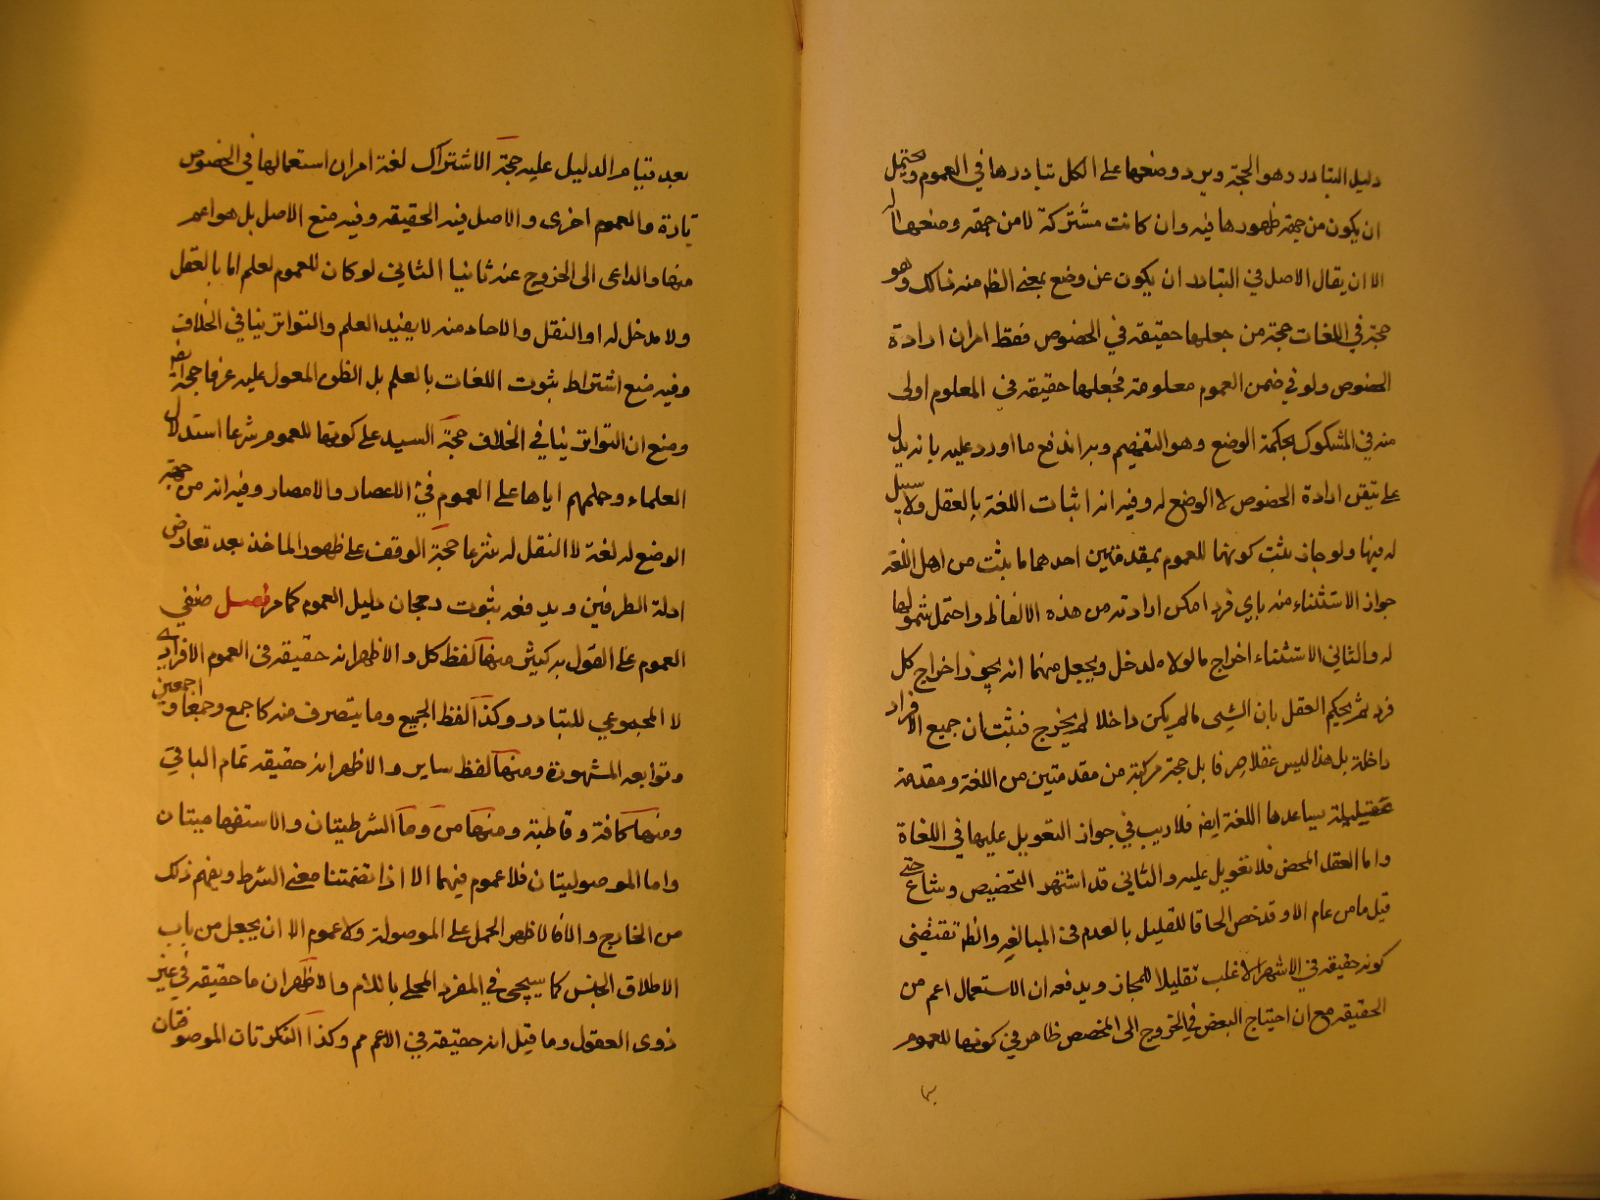 دليل التبادر وهو الحجة ويرد وضعها على الكل تبادرها في العموم ويحتمل
ان يكون من جهة ظهورها فيه وان كانت مشتركة لا من جهة وضعها له
الا ان يقال الاصل في التبادر ان يكون عن وضع بمعنى الظه منه ذلك وهو
حجة في اللغات حجة من جعلها حقيقة في الخصوص فقط امران ارادة
الخصوص ولو في ضمن العموم معلومة فجعلها حقيقة في المعلوم اولى
منه في المشكوك بحكمة الوضع وهو التفهيم وبه اندفع ما اورد عليه بانه يدل
على تيقن ارادة الخصوص لا الوضع له وفيه انه اثبات اللغة بالعقل ولا سبيل
له فيها ولو جاز يثبت كونها للعموم بمقدمتين احدهما ما يثبت من اهل اللغة
جواز الاستثناء منه باي فرد امكن ارادته من هذه الالفاظ واحتمل شمولها
له والثاني الاستثناء اخراج ما لولاه لدخل ويجعل منهما انه يجوز اخراج كل
فرد ثم يحكم العقل بان الشيء ما لم يكن داخلا لم يخرج فيثبت ان جميع الافراد
داخلة بل هذا ليس عقلا صرفا بل حجة مركبة من مقدمتين من اللغة ومقدمة
عقيليلة يساعدها اللغة ايضه فلا ريب في جواز التعويل عليها في اللغاة
واما العقل المحض فلا تعويل عليه والثاني قد اشتهر التخصيص وشاع حتى
قيل ما من عام الا وقد خص الحاقا للقليل بالعدم في المبالغة والظه تقتضي
كونه حقيقة في الاشهر الاغلب تقليلا للمجاز ويدفعه ان الاستعمال اعم من
الحقيقة مع ان احتياج البعض في الخروج الى المخصص ظاهر في كونها للعموم
بعد قيام الدليل عليه حجة الاشتراك لغة امران استعمالها في الخصوص
تارة والعموم اخرى والاصل فيه الحقيقة وفيه منع الاصل بل هو اعم
منها والداعي الى الخروج عنه ثانيا الثاني لو كان للعموم لعلم اما بالعقل
ولا مدخل له او النقل والاحاد منه لا يفيد العلم والتواتر ينافي الخلاف
وفيه منع اشتراط ثبوت اللغات بالعلم بل الظن المعول عليه عرفا حجة ايضه
ومنع ان التواتر ينافي الخلاف حجة السيد على كونها للعموم شرعا استدلال
العلماء وحملهم اياها على العموم في الاعصار والامصار وفيه انه من جهة
الوضع له لغة لا النقل له شرعا حجة الوقف على ظهور الماخذ بعد تعارض
ادلة الطرفين ويدفعه ثبوت رجحان دليل العموم كما مر فصل صيغ
العموم على القول به كثيرة منها لفظ كل والاظهر انه حقيقة في العموم الافرادي
لا المجموعي للتبادر وكذا لفظ الجميع وما يتصرف منه كاجمع وجمعا واجمعين
وتوابعه المشهورة ومنها لفظ ساير والاظهر انه حقيقة تمام الباقي
ومنها كافة وقاطبة ومنها من وما الشرطيتان والاستفهاميتان
واما الموصوليتان فلا عموم فيهما الا اذا تضمنتا معنى الشرط ويفهم ذلك
من الخارج والا فالاظهر الحمل على الموصولة ولا عموم الا ان يجعل من باب
الاطلاق الجنس كما سيجيء في المفرد المحلى باللام والاظهر ان ما حقيقة في غير
ذوى العقول وما قيل انه حقيقة في الاعم مم وكذا النكرتان الموصوفتان